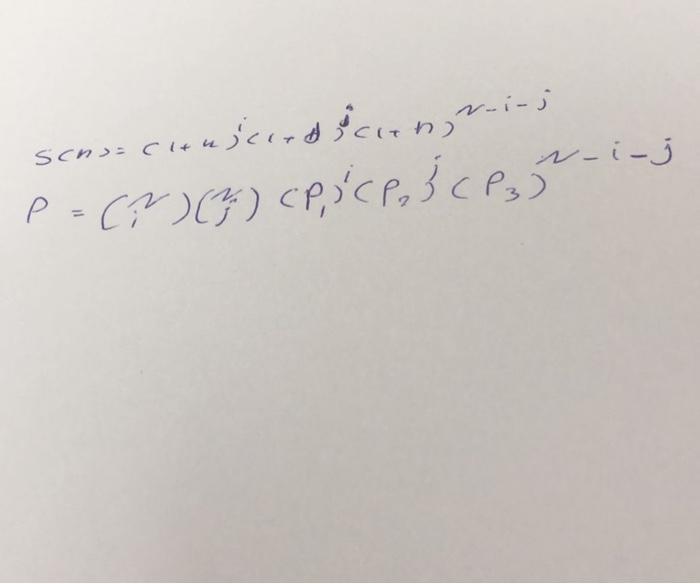 S(n) = (1+u)^i (1+d)^j (1+n)^{N-i-j}
P = (N i)(N j) (P_1)^i (P_2)^j (P_3)^{N-i-j}